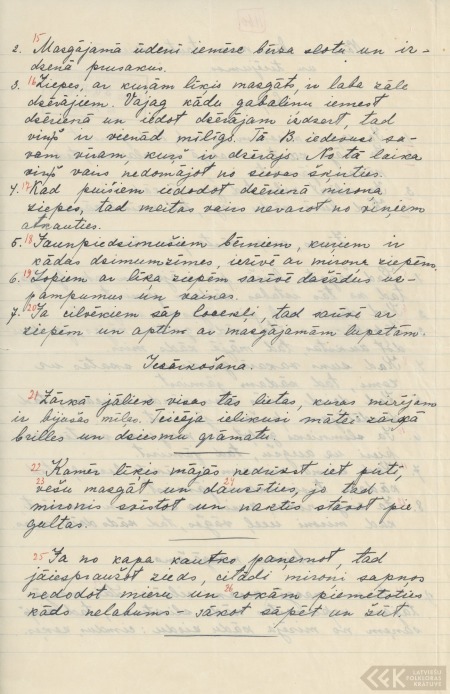 15
2. Mazgājamā ūdenī iemērc bērza slotu un iz-
dzenā prusakus.
3. 16 Ziepes, ar kurām līķis mazgāts, ir laba zāle
dzērājiem. Vajag kādu gabaliņu iemest
dzērienā un iedot dzērājam izdzert, tad
viņš ir vienād mīlīgs. Tā B. iedevusi sa-
vam vīram kurš ir dzērājs. No tā laika
viņš vairs nedomājot no sievas šķirties.
4. 17 Kad puišiem iedodot dzērienā miroņa
ziepes, tad meitas vairs nevarot no viņiem
atkauties.
5. 18 Jaunpiedzimušiem bērniem, kuriem ir
kādas dzimumzīmes, ierīvē ar miroņa ziepēm.
6. 19 Lopiem ar līķa ziepēm sarīvē dažādus uz-
pampumus un vainas.
7. 20 Ja cilvēkiem sāp locekļi, tad sarīvē ar
ziepēm un aptin ar mazgājamām lupatām.
Iezārkošana.
21 Zārkā jāliek visas tās lietas, kuras mirējam
ir bijušas mīļas. Teicēja ielikusi mātei zārkā
brilles un dziesmu grāmatu.
22 Kamēr līķis mājās nedrīkst iet pirtī,
23 vešu mazgāt un 24 dauzīties, jo tad
mironis svīstot un naktīs stāvot pie
gultas.
25 Ja no kapa kautko paņemot, tad
jāiespraužot zieds, citādi miroņi sapņos
nedodot mieru un 26 rokām piemetoties
kāds nelabums - sākot sāpēt un žūt.
LATVIEŠU
FOLKLORAS
KRĀTUVE